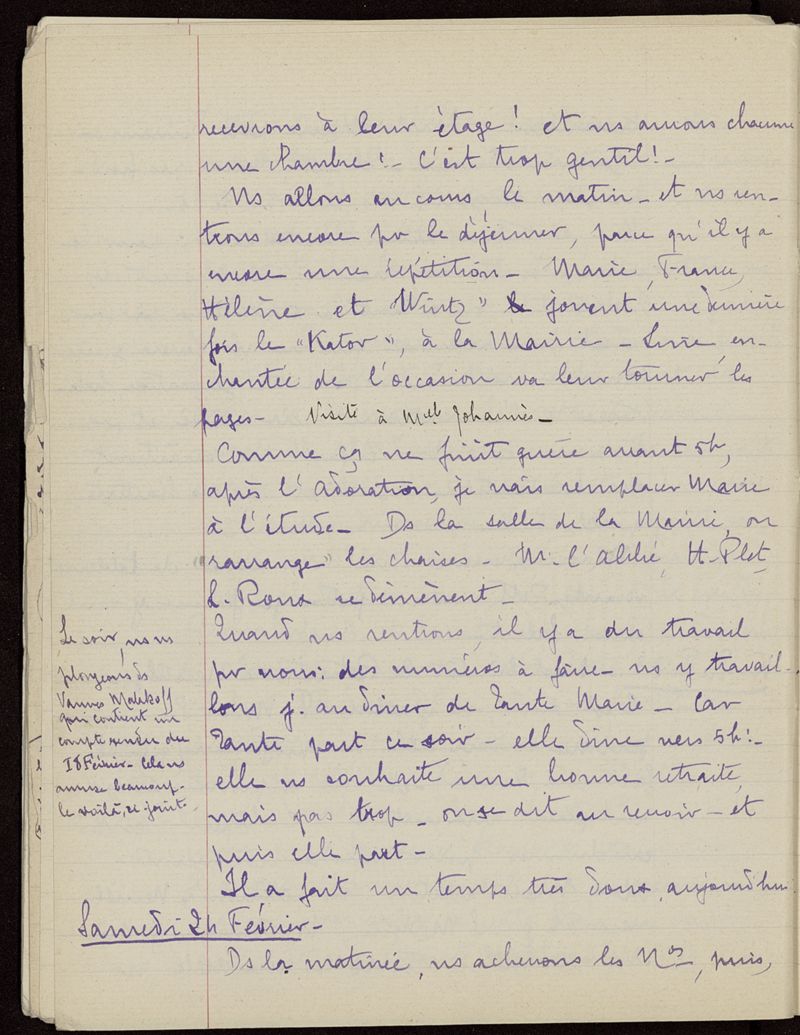 recevrons à leur étage ! et ns aurons chacune
une chambre ! - C'est trop gentil ! -
Ns allons au cours le matin - et ns ren-
trons encore pr le déjeuner, parce qu'il y a
encore une répétition - Marie, France,
Hélène et "Wirtz" jouent une dernière
fois le "Kator", à la Mairie - en-
chantée de l'occasion va leur tourner les
pages - Visite à Melle Johannès -
Comme ça ne finit guère avant 5h,
après l'adoration, je vais remplacer Marie
à l'étude - Ds la salle de la Mairie, on
"rarrange" les chaises - M. l'Abbé, H. Plet,
L. Roux se démènent -
Quand ns rentrons, il y a du travail
pr nous : des numéros à faire - ns y travail-
lons j. au dîner de Tante Marie - Car
Tante part ce soir - elle dîne vers 5h ! -
elle ns souhaite une bonne retraite,
mais pas trop - on se dit au revoir - et
puis elle part -
Il a fait un temps très doux, aujourd'hui
Le soir, ns ns
plongeons ds
Vanves Malakoff
qui contient un
compte rendu du
18 Février - Cela ns
amuse beaucoup -
le voilà, ci joint -
Samedi 24 Février -
Ds la matinée, ns achevons les Nos, puis,